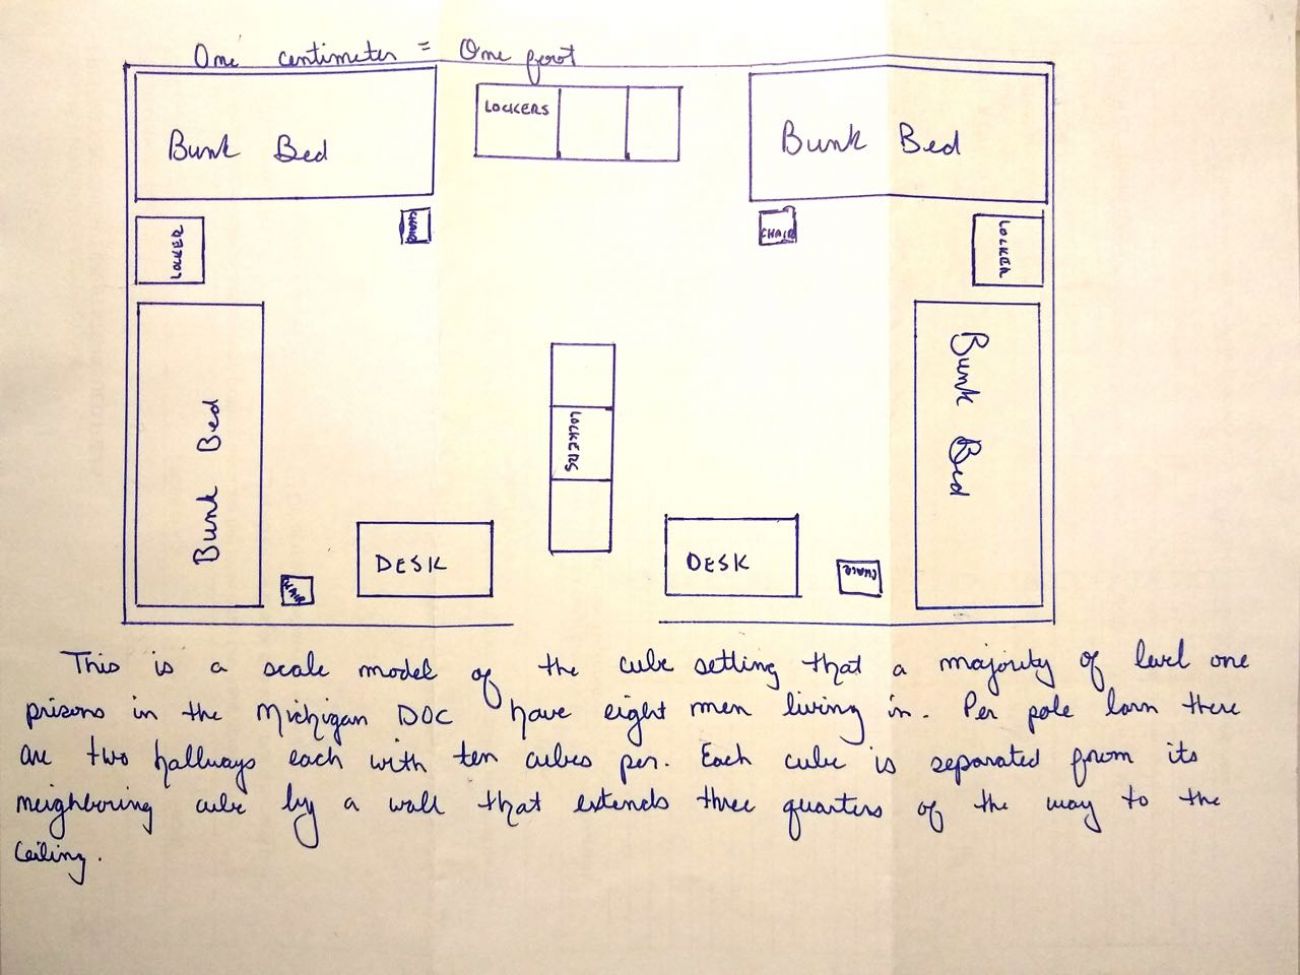 One centimeter = One foot
Bunk Bed
LOCKERS
Bunk Bed
LOCKER
CHAIR
CHAIR
LOCKER
Bunk Bed
LOCKERS
Bunk Bed
CHAIR
DESK
DESK
CHAIR
This is a scale model of the cube setting that a majority of level one
prisons in the Michigan DOC have eight men living in. Per pole barn there
are two hallways each with ten cubes per. Each cube is separated from its
neighboring cube by a wall that extends three quarters of the way to the
ceiling.